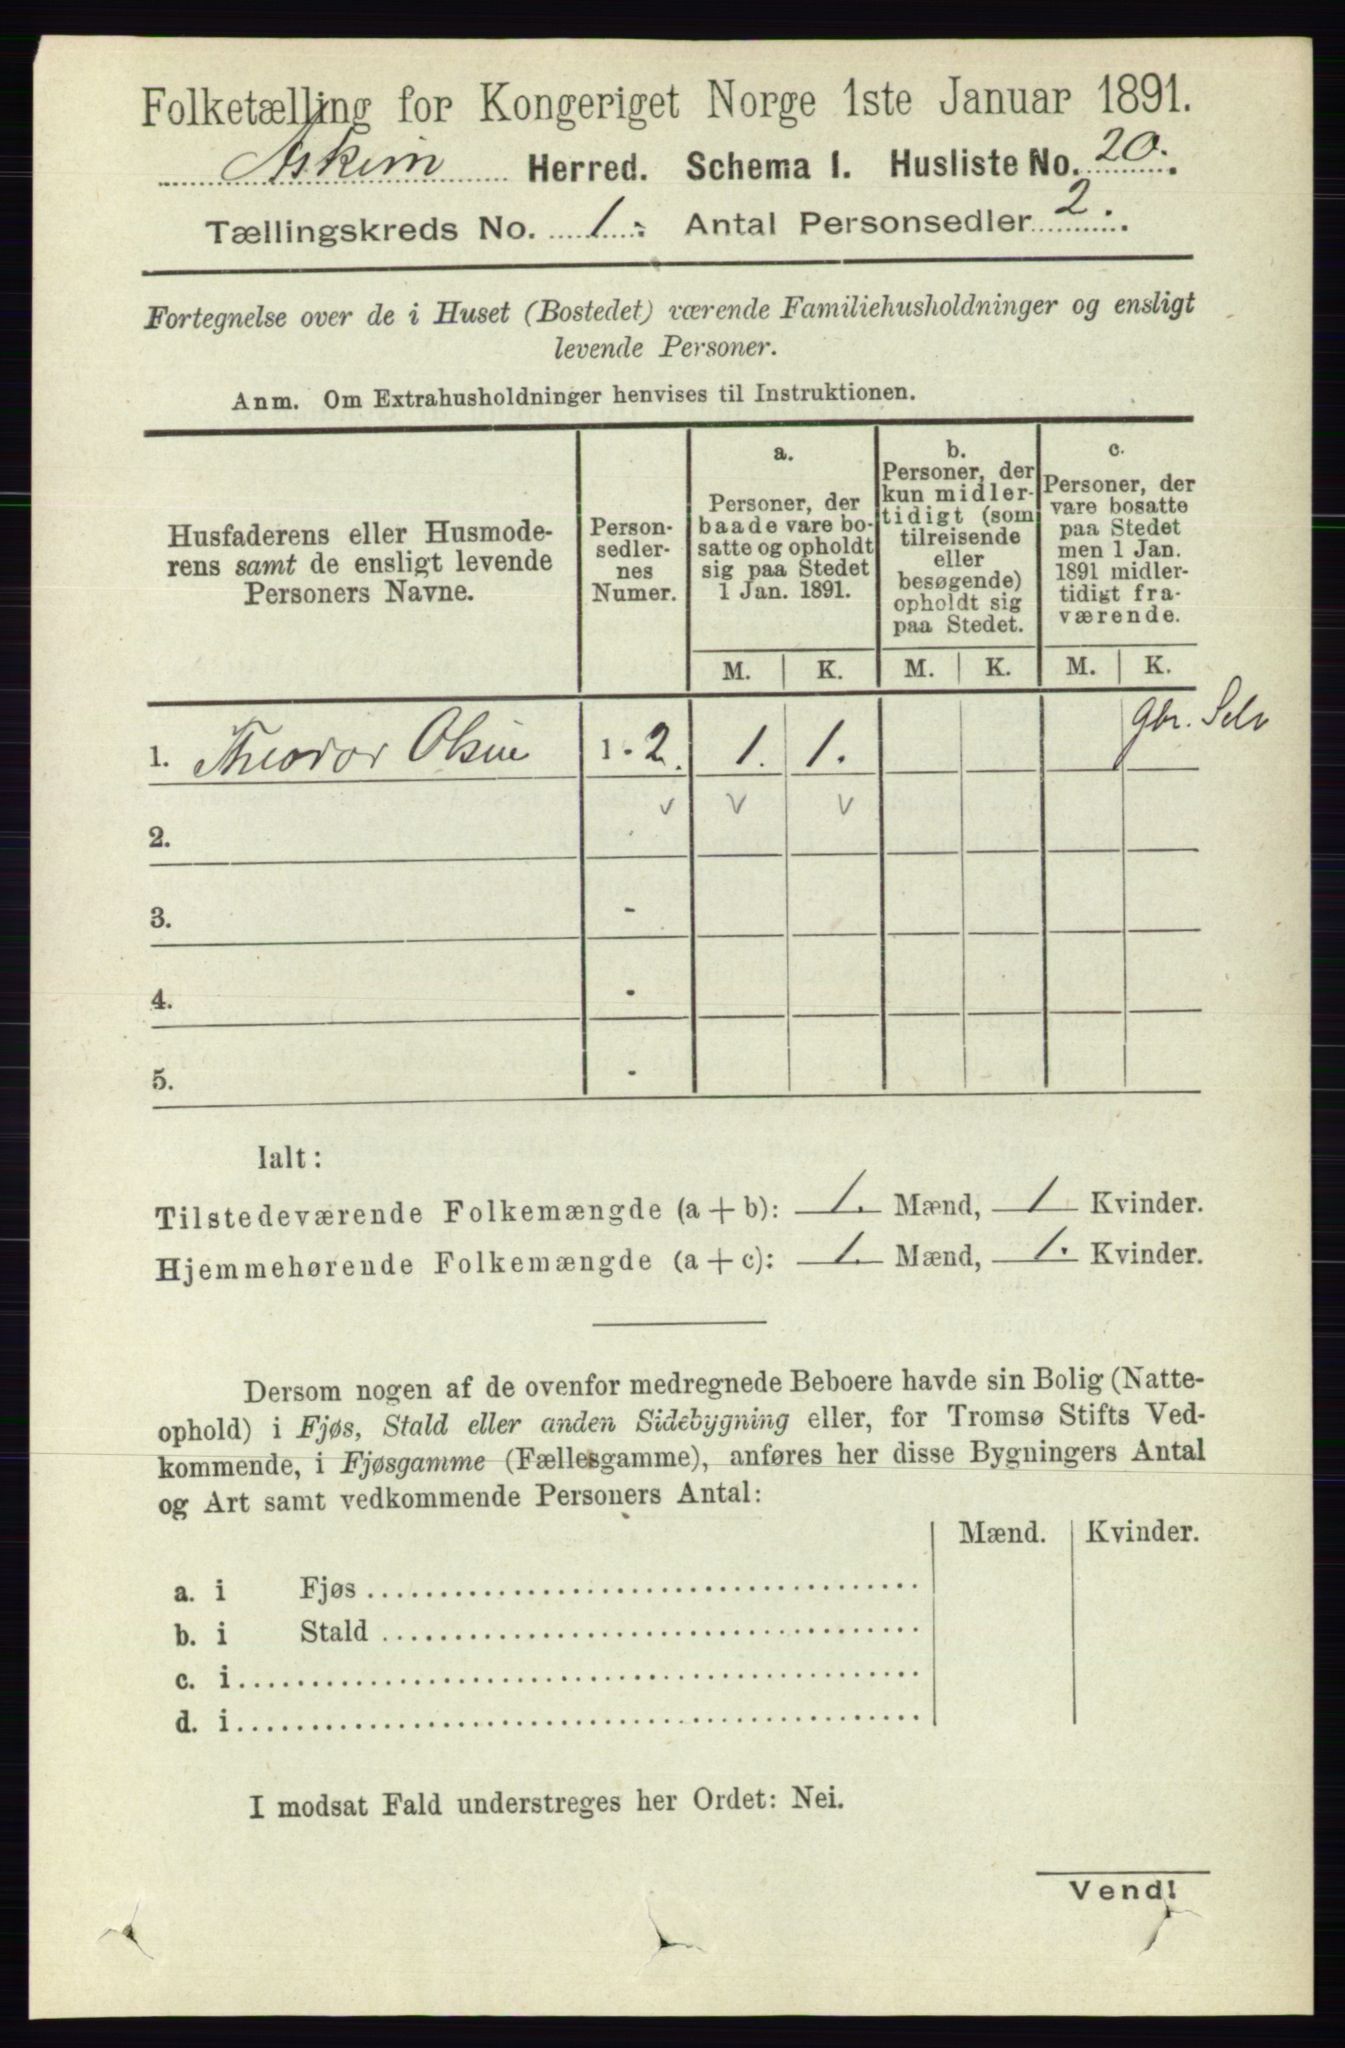 Folketælling for Kongeriget Norge 1ste Januar 1891.
Askim Herred. Schema 1. Husliste No. 20.
Tællingskreds No. 1. Antal Personsedler 2.
Fortegnelse over de i Huset (Bostedet) værende Familiehusholdninger og ensligt
levende Personer.
Anm. Om Extrahusholdninger henvises til Instruktionen.
Husfaderens eller Husmode-
rens samt de ensligt levende
Personers Navne.
Person-
sedler-
nes
Numer.
a.
Personer, der
baade vare bo-
satte og opholdt
sig paa Stedet
1 Jan. 1891.
b.
Personer, der
kun midler-
tidigt (som
tilreisende
eller
besøgende)
opholdt sig
paa Stedet.
c.
Personer, der
vare bosatte
paa Stedet
men 1 Jan.
1891 midler-
tidigt fra-
værende.
M. K. M. K. M. K.
1. Theodor Olsen 1 - 2. 1. 1. gbr. Selv
2.
3. -
4. -
5. -
Ialt:
Tilstedeværende Folkemængde (a + b): 1. Mænd, 1 Kvinder.
Hjemmehørende Folkemængde (a + c): 1. Mænd, 1. Kvinder.
Dersom nogen af de ovenfor medregnede Beboere havde sin Bolig (Natte-
ophold) i Fjøs, Stald eller anden Sidebygning eller, for Tromsø Stifts Ved-
kommende, i Fjøsgamme (Fællesgamme), anføres her disse Bygningers Antal
og Art samt vedkommende Personers Antal:
Mænd. Kvinder.
a. i Fjøs
b. i Stald
c. i
d. i
I modsat Fald understreges her Ordet: Nei.
Vend!